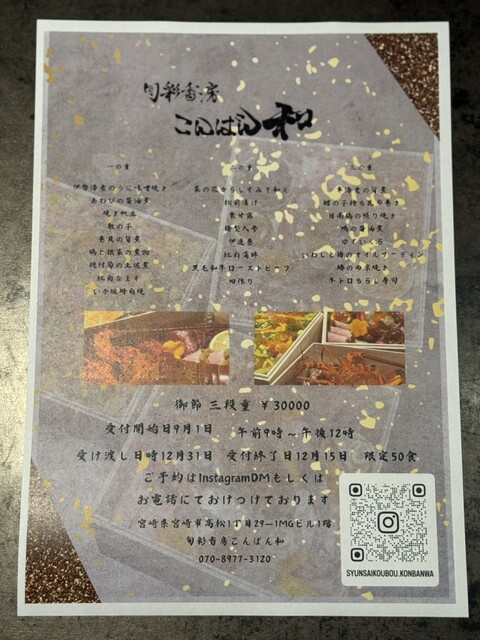 旬彩香房
こんばん和
一の重
二の重
三の重
伊勢海老のうに味噌焼き
あわびの醤油煮
焼き帆立
数の子
穂付筍の土佐煮
紅白なます
菜の花からしすみそ和え
松前漬け
栗甘露
梅型人参
伊達巻
紅白蒲鉾
黒毛和牛ローストビーフ
田作り
車海老の旨煮
日南鶏の照り焼き
鴨の醤油煮
ゆずいくら
牛トロちらし寿司
御節 三段重 ¥30000
受付開始日9月1日 午前9時~午後12時
受け渡し日時12月31日 受付終了日12月15日 限定50食
ご予約はInstagramDMもしくは
お電話にておけつけております
宮崎県宮崎市高松1丁目29ー1MGビル1階
旬彩香房こんばん和
070-8977-3120
SYUNSAIKOUBOU.KONBANWA